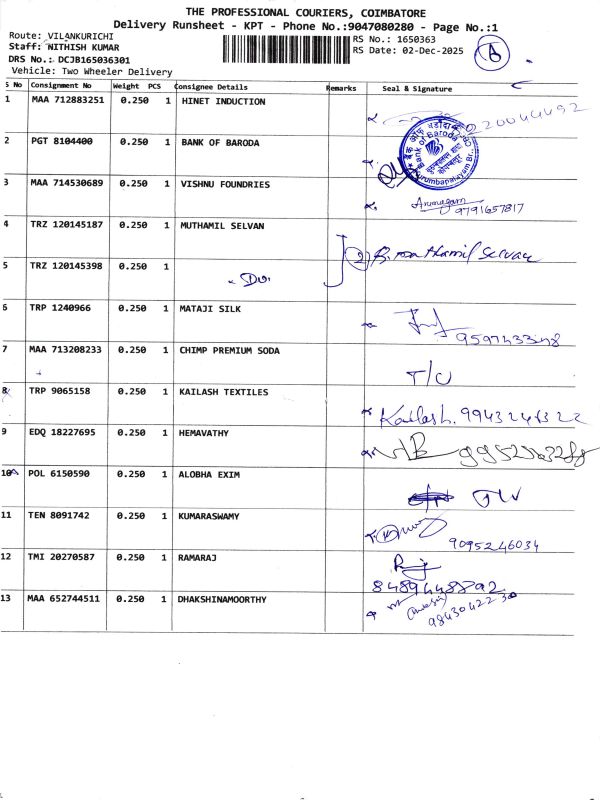 THE PROFESSIONAL COURIERS, COIMBATORE
Delivery Runsheet - KPT - Phone No.:9047080280 - Page No.:1
Route: VILANKURICHI
Staff: NITHISH KUMAR
RS No.: 1650363
DRS No.: DCJB165036301
RS Date: 02-Dec-2025
Vehicle: Two Wheeler Delivery
S No Consignment No Weight PCS Consignee Details Remarks Seal & Signature
1 MAA 712883251 0.250 1 HINET INDUCTION
2 PGT 8104400 0.250 1 BANK OF BARODA
Bank of Baroda
3 MAA 714530689 0.250 1 VISHNU FOUNDRIES
Arumugam
9791657817
4 TRZ 120145187 0.250 1 MUTHAMIL SELVAN
2 B. muthamil selvan
5 TRZ 120145398 0.250 1 - Do.
6 TRP 1240966 0.250 1 MATAJI SILK
7 MAA 713208233 0.250 1 CHIMP PREMIUM SODA
T/C
8 TRP 9065158 0.250 1 KAILASH TEXTILES
Kailash.
9 EDQ 18227695 0.250 1 HEMAVATHY
10 POL 6150590 0.250 1 ALOBHA EXIM
11 TEN 8091742 0.250 1 KUMARASWAMY
9095246034
12 TMI 20270587 0.250 1 RAMARAJ
13 MAA 652744511 0.250 1 DHAKSHINAMOORTHY